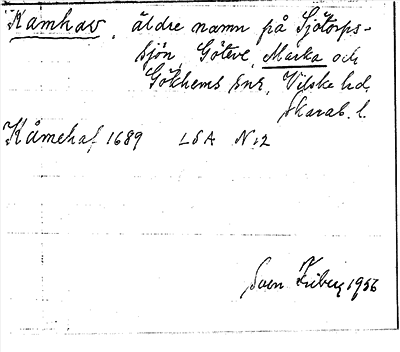 Kåmhav, äldre namn på Sjötorps-
sjön, Göteve, Marka och
Gökhems snr, Vilske hd,
Skarab. l.
Kåmehaf 1689 LSA N:2
Sven Friberg 1956